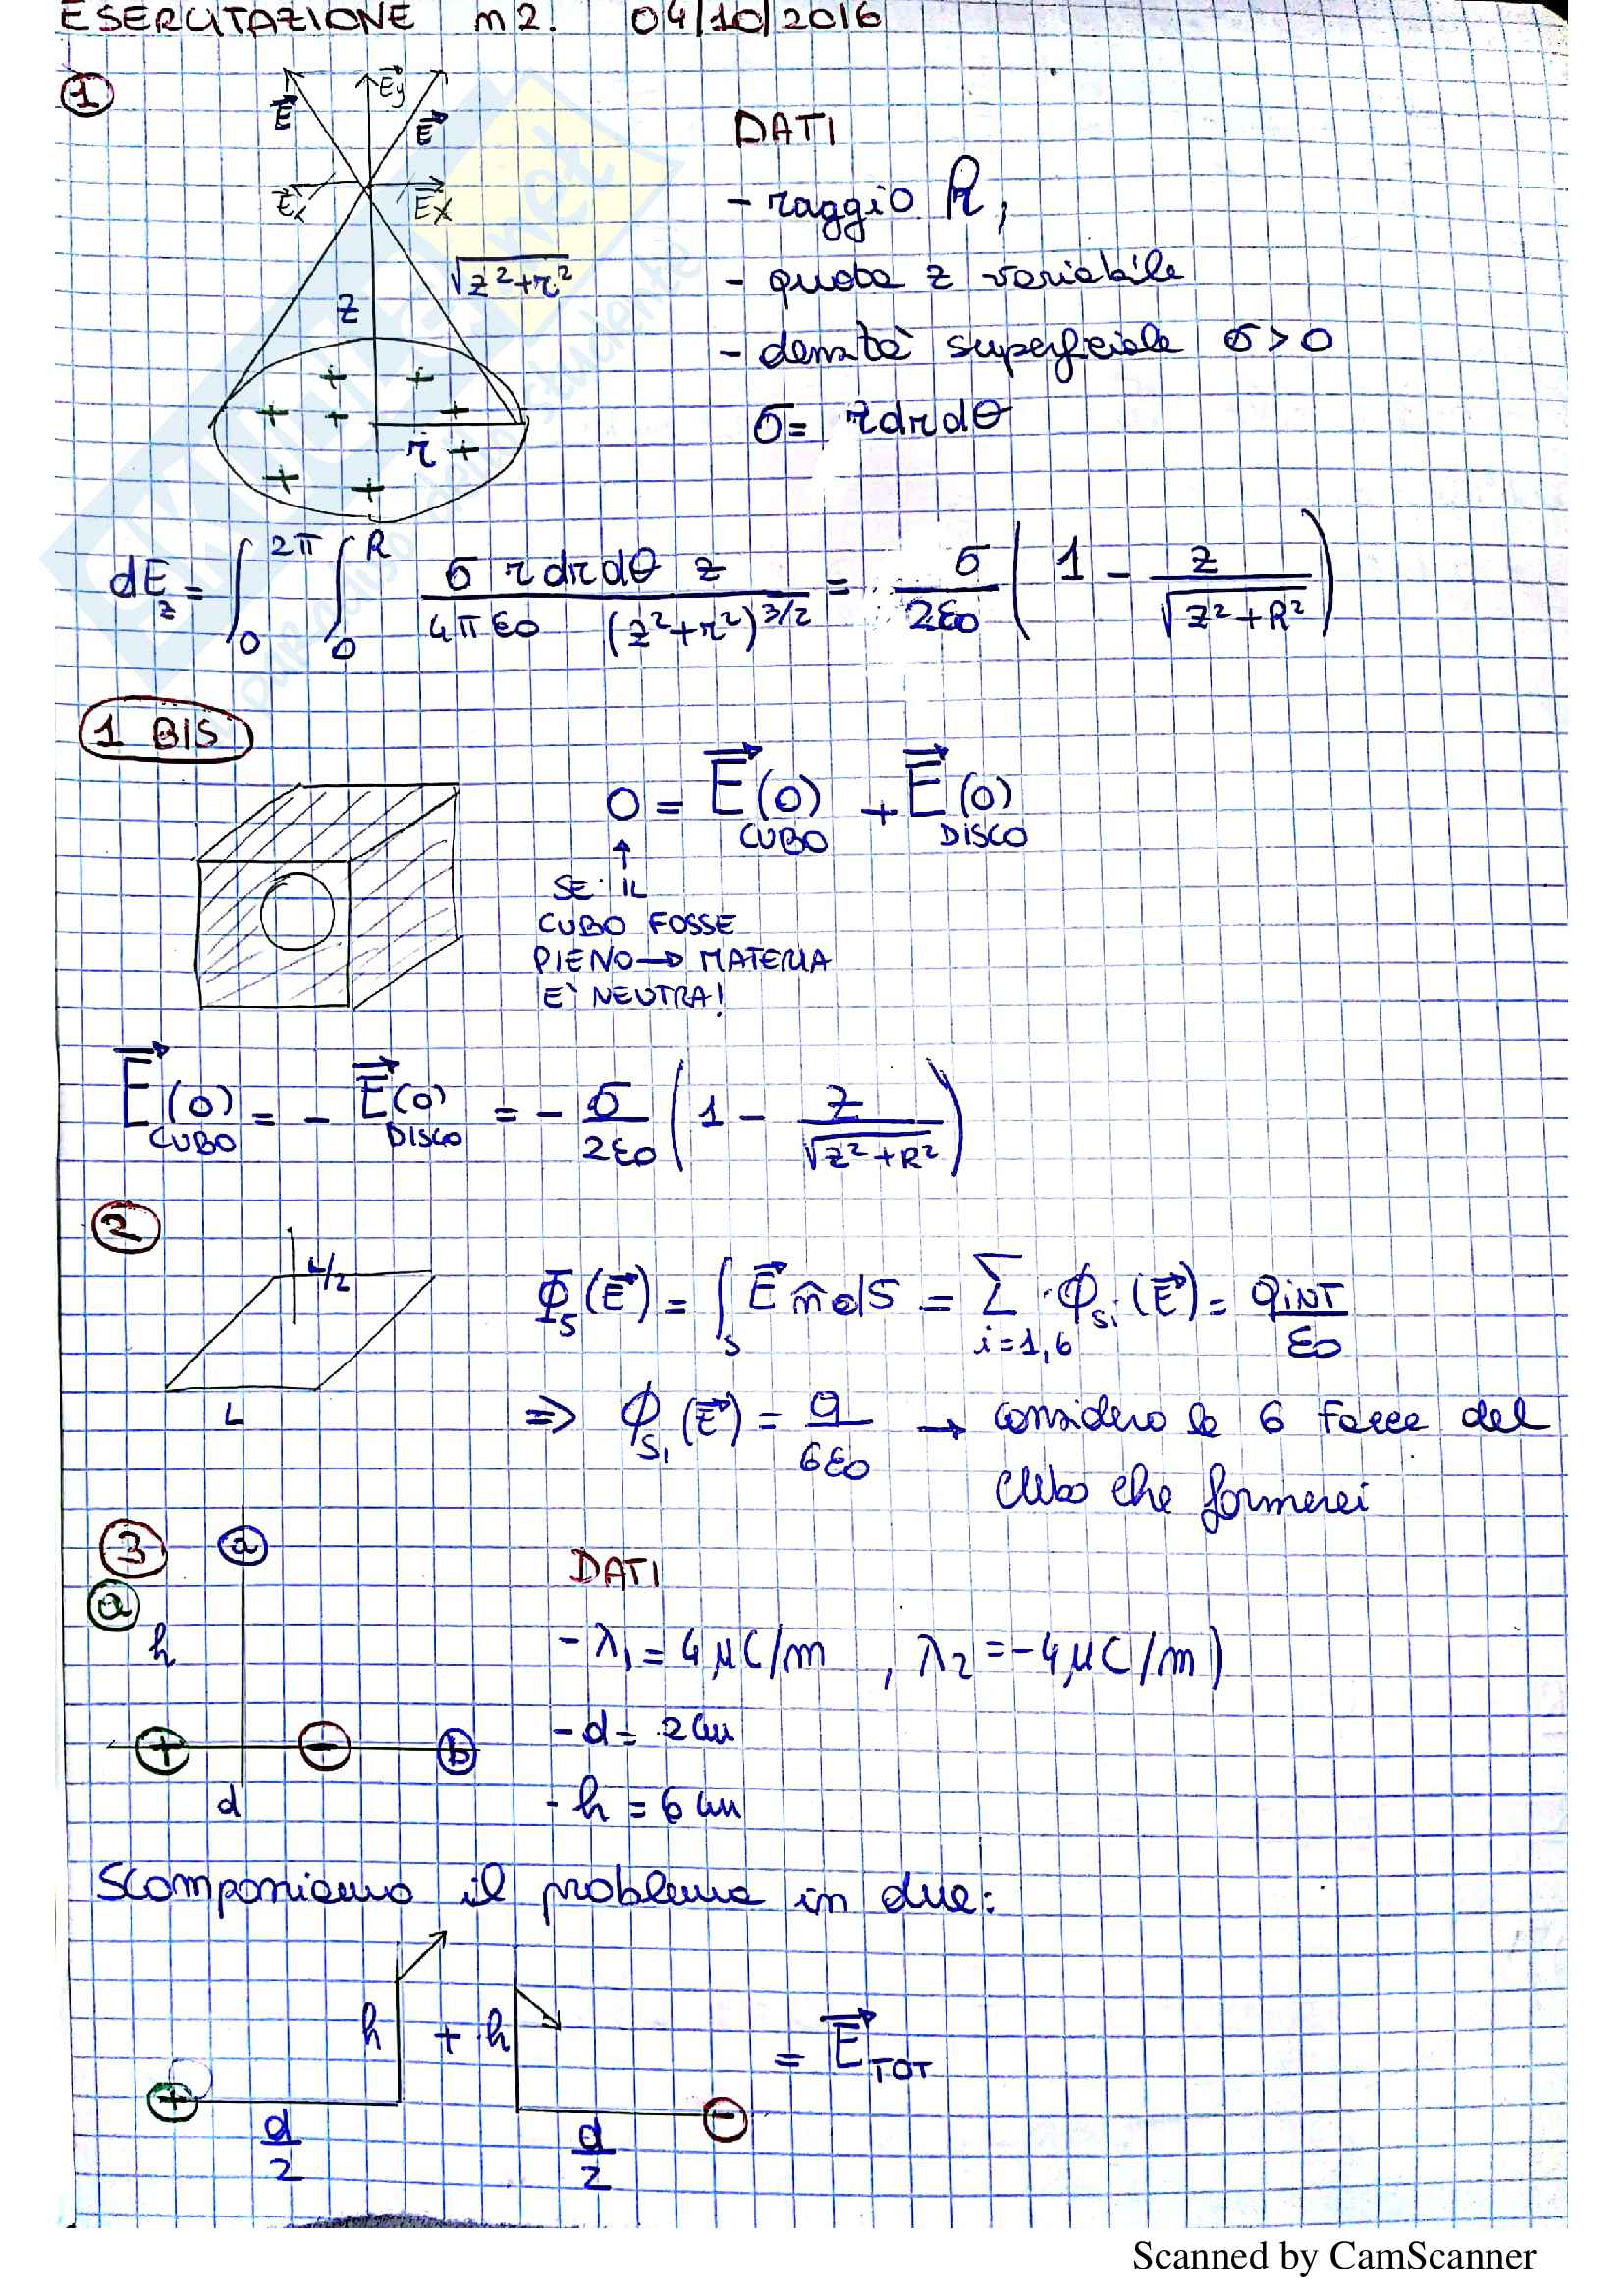 ESERCITAZIONE n2. 04/10/2016
1
E⃗ E⃗y E⃗
E⃗x E⃗x
√z²+r²
z
r
DATI
- raggio R,
- quota z variabile
- densità superficiale σ>0
σ= rdrdθ
dE_z = ∫₀^2π ∫₀^R σ rdrdθ z / 4πε₀ (z²+r²)^3/2 = σ/2ε₀ (1 - z/√z²+R²)
1 BIS
0 = E⃗(0) CUBO + E⃗(0) DISCO
↑
SE IL
CUBO FOSSE
PIENO → MATERIA
E' NEUTRA!
E⃗(0) CUBO = - E⃗(0) DISCO = - σ/2ε₀ (1 - z/√z²+R²)
2
L/2
L
Φ_S(E⃗) = ∫_S E⃗ n̂ dS = Σ_i=1,6 Φ_Si (E⃗) = qINT/ε₀
=> Φ_S1 (E⃗) = q/6ε₀ → considero le 6 facce del
cubo che formerei
3 a
a
h
+ - b
d
DATI
- λ₁ = 4μC/m , λ₂ = -4μC/m)
- d = 2cm
- h = 6cm
Scomponiamo il problema in due:
h + h
+ - = E⃗TOT
d/2 d/2
Scanned by CamScanner